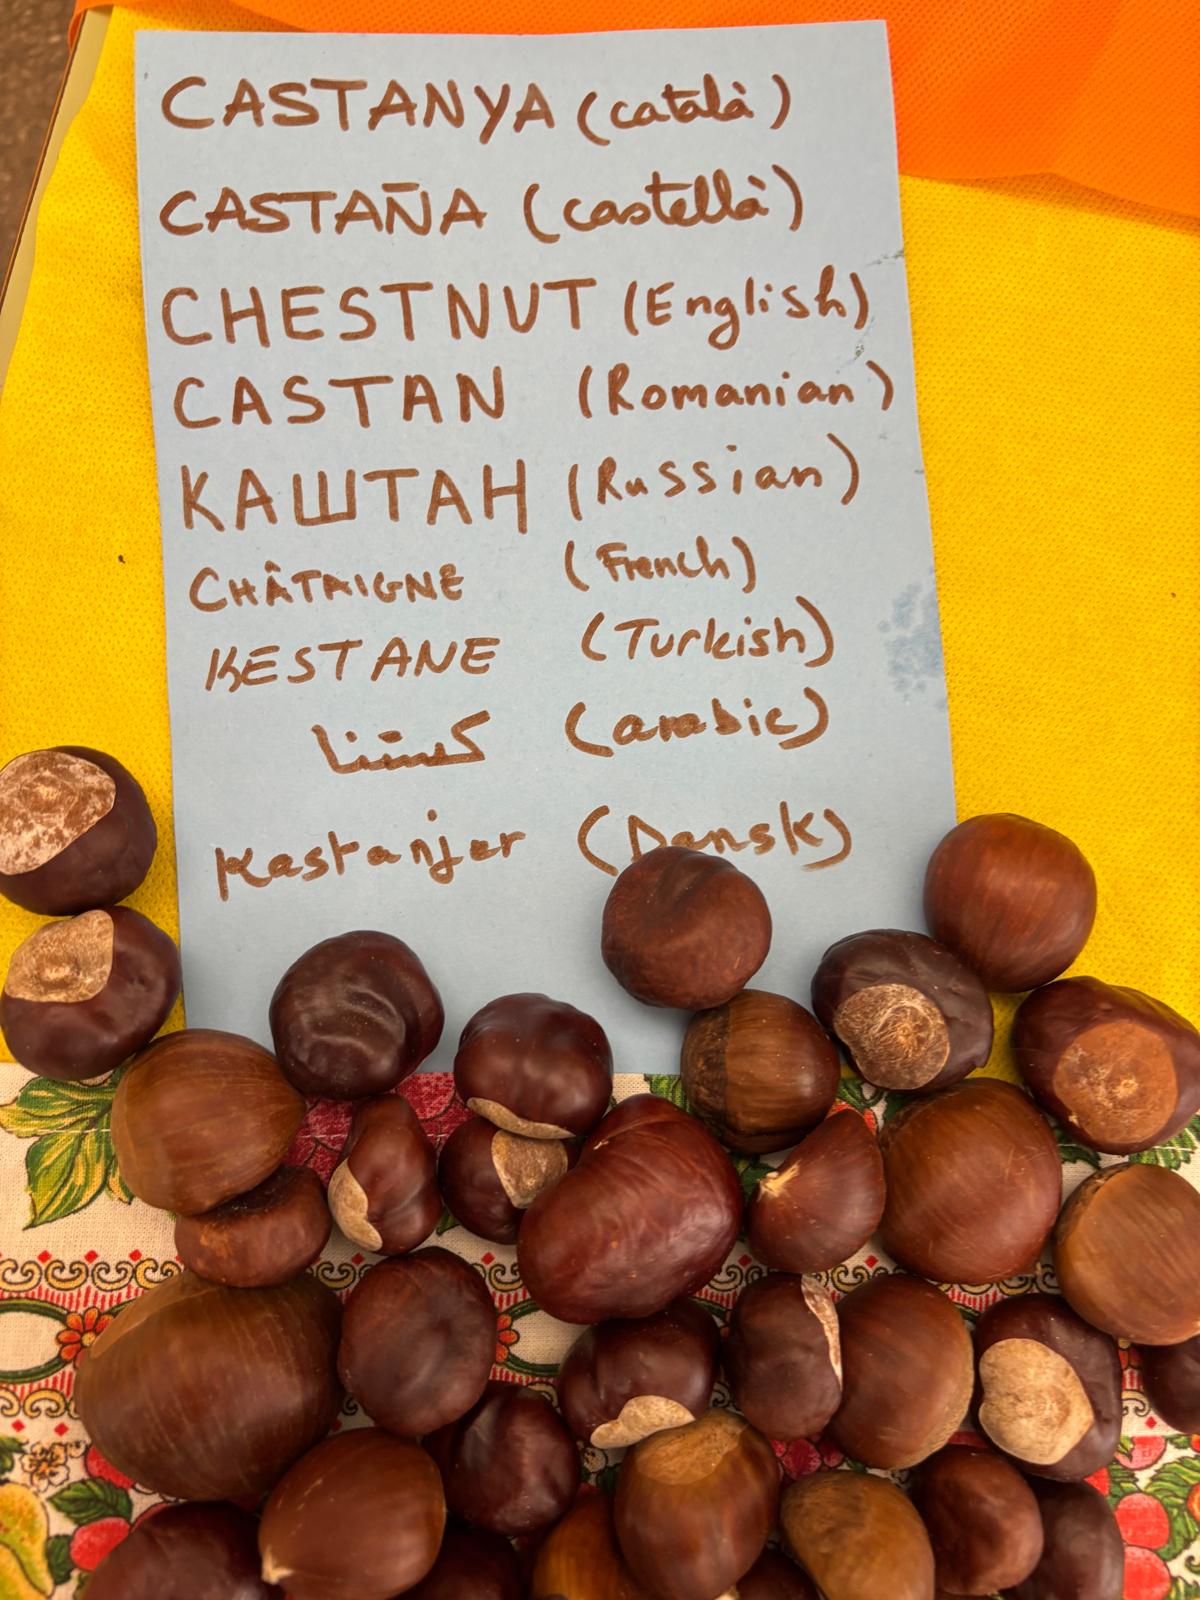 CASTANYA (català)
CASTAÑA (castellà)
CHESTNUT (English)
CASTAN (Romanian)
КАШТАН (Russian)
CHÂTAIGNE (French)
KESTANE (Turkish)
كستنا (arabic)
Kastanjer (Dansk)